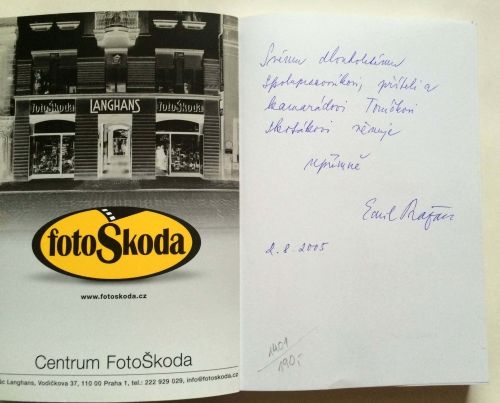 fotoŠkoda
LANGHANS
fotoŠkoda
fotoŠkoda
www.fotoskoda.cz
Centrum FotoŠkoda
ác Langhans, Vodičkova 37, 110 00 Praha 1, tel.: 222 929 029, info@fotoskoda.cz
Svému dlouholetému
spolupracovníkovi, příteli a
kamarádovi Tomíčkovi
věnuje
upřímně
Emil
2.8.2005
1401
190,-